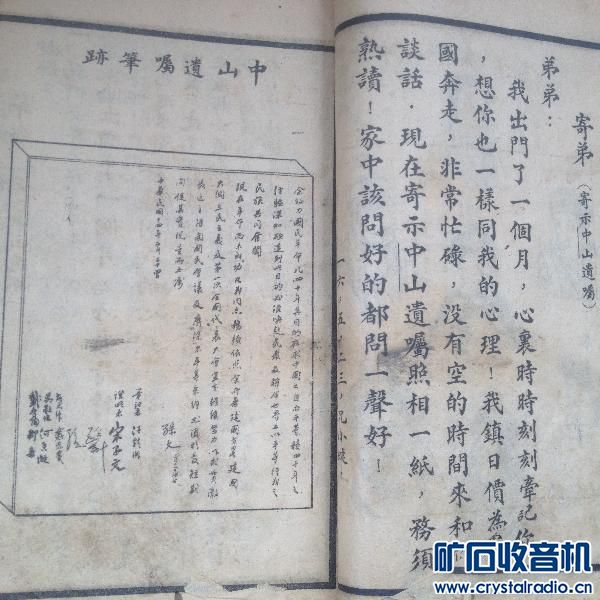 寄弟（寄示中山遺囑）
弟弟：
我出門了一個月，心裏時時刻刻牽記你
，想你也一樣同我的心理！我鎮日價為
國奔走，非常忙碌，沒有空的時間來和
談話．現在寄示中山遺囑照相一紙，務須
熟讀！家中該問好的都問一聲好！
一六，五，二三，兄小
中山遺囑筆跡
余致力國民革命凡四十年其目的在求中國之自由平等積四十年之
經驗深知欲達到此目的必須喚起民衆及聯合世界上以平等待我之
民族共同奮鬥
現在革命尚未成功凡我同志務須依照余所著建國方略建國
大綱三民主義及第一次全國代表大會宣言繼續努力以求貫徹
最近主張開國民會議及廢除不平等條約尤須於最短期
間促其實現是所至囑
中華民國十四年二月二十
孫文
筆記者 汪精衛
證明者 宋子文
矿石收音机
www.crystalradio.cn